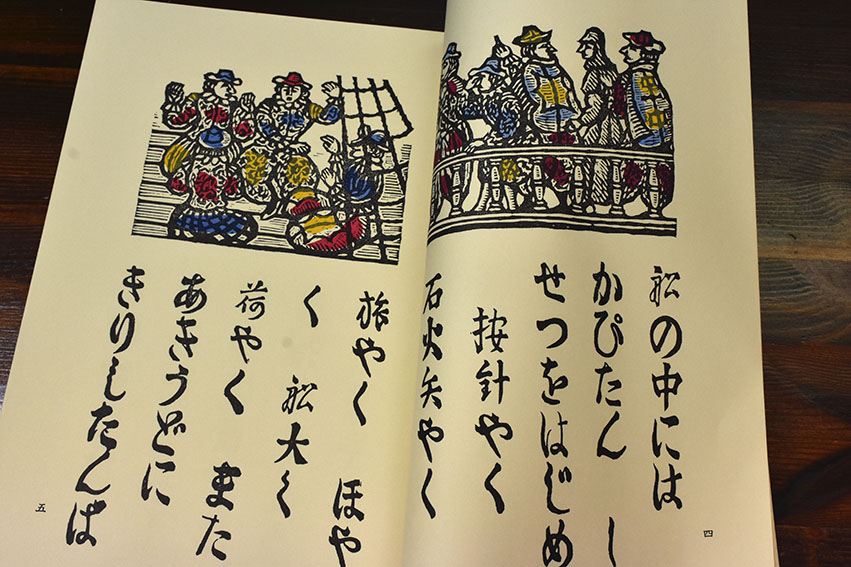 舩の中には
かぴたん　し
せつをはじめ
按針やく
石火矢やく
四
旅やく　ほや
く　舩大く
荷やく　また
あきうどに
きりしたんば
五